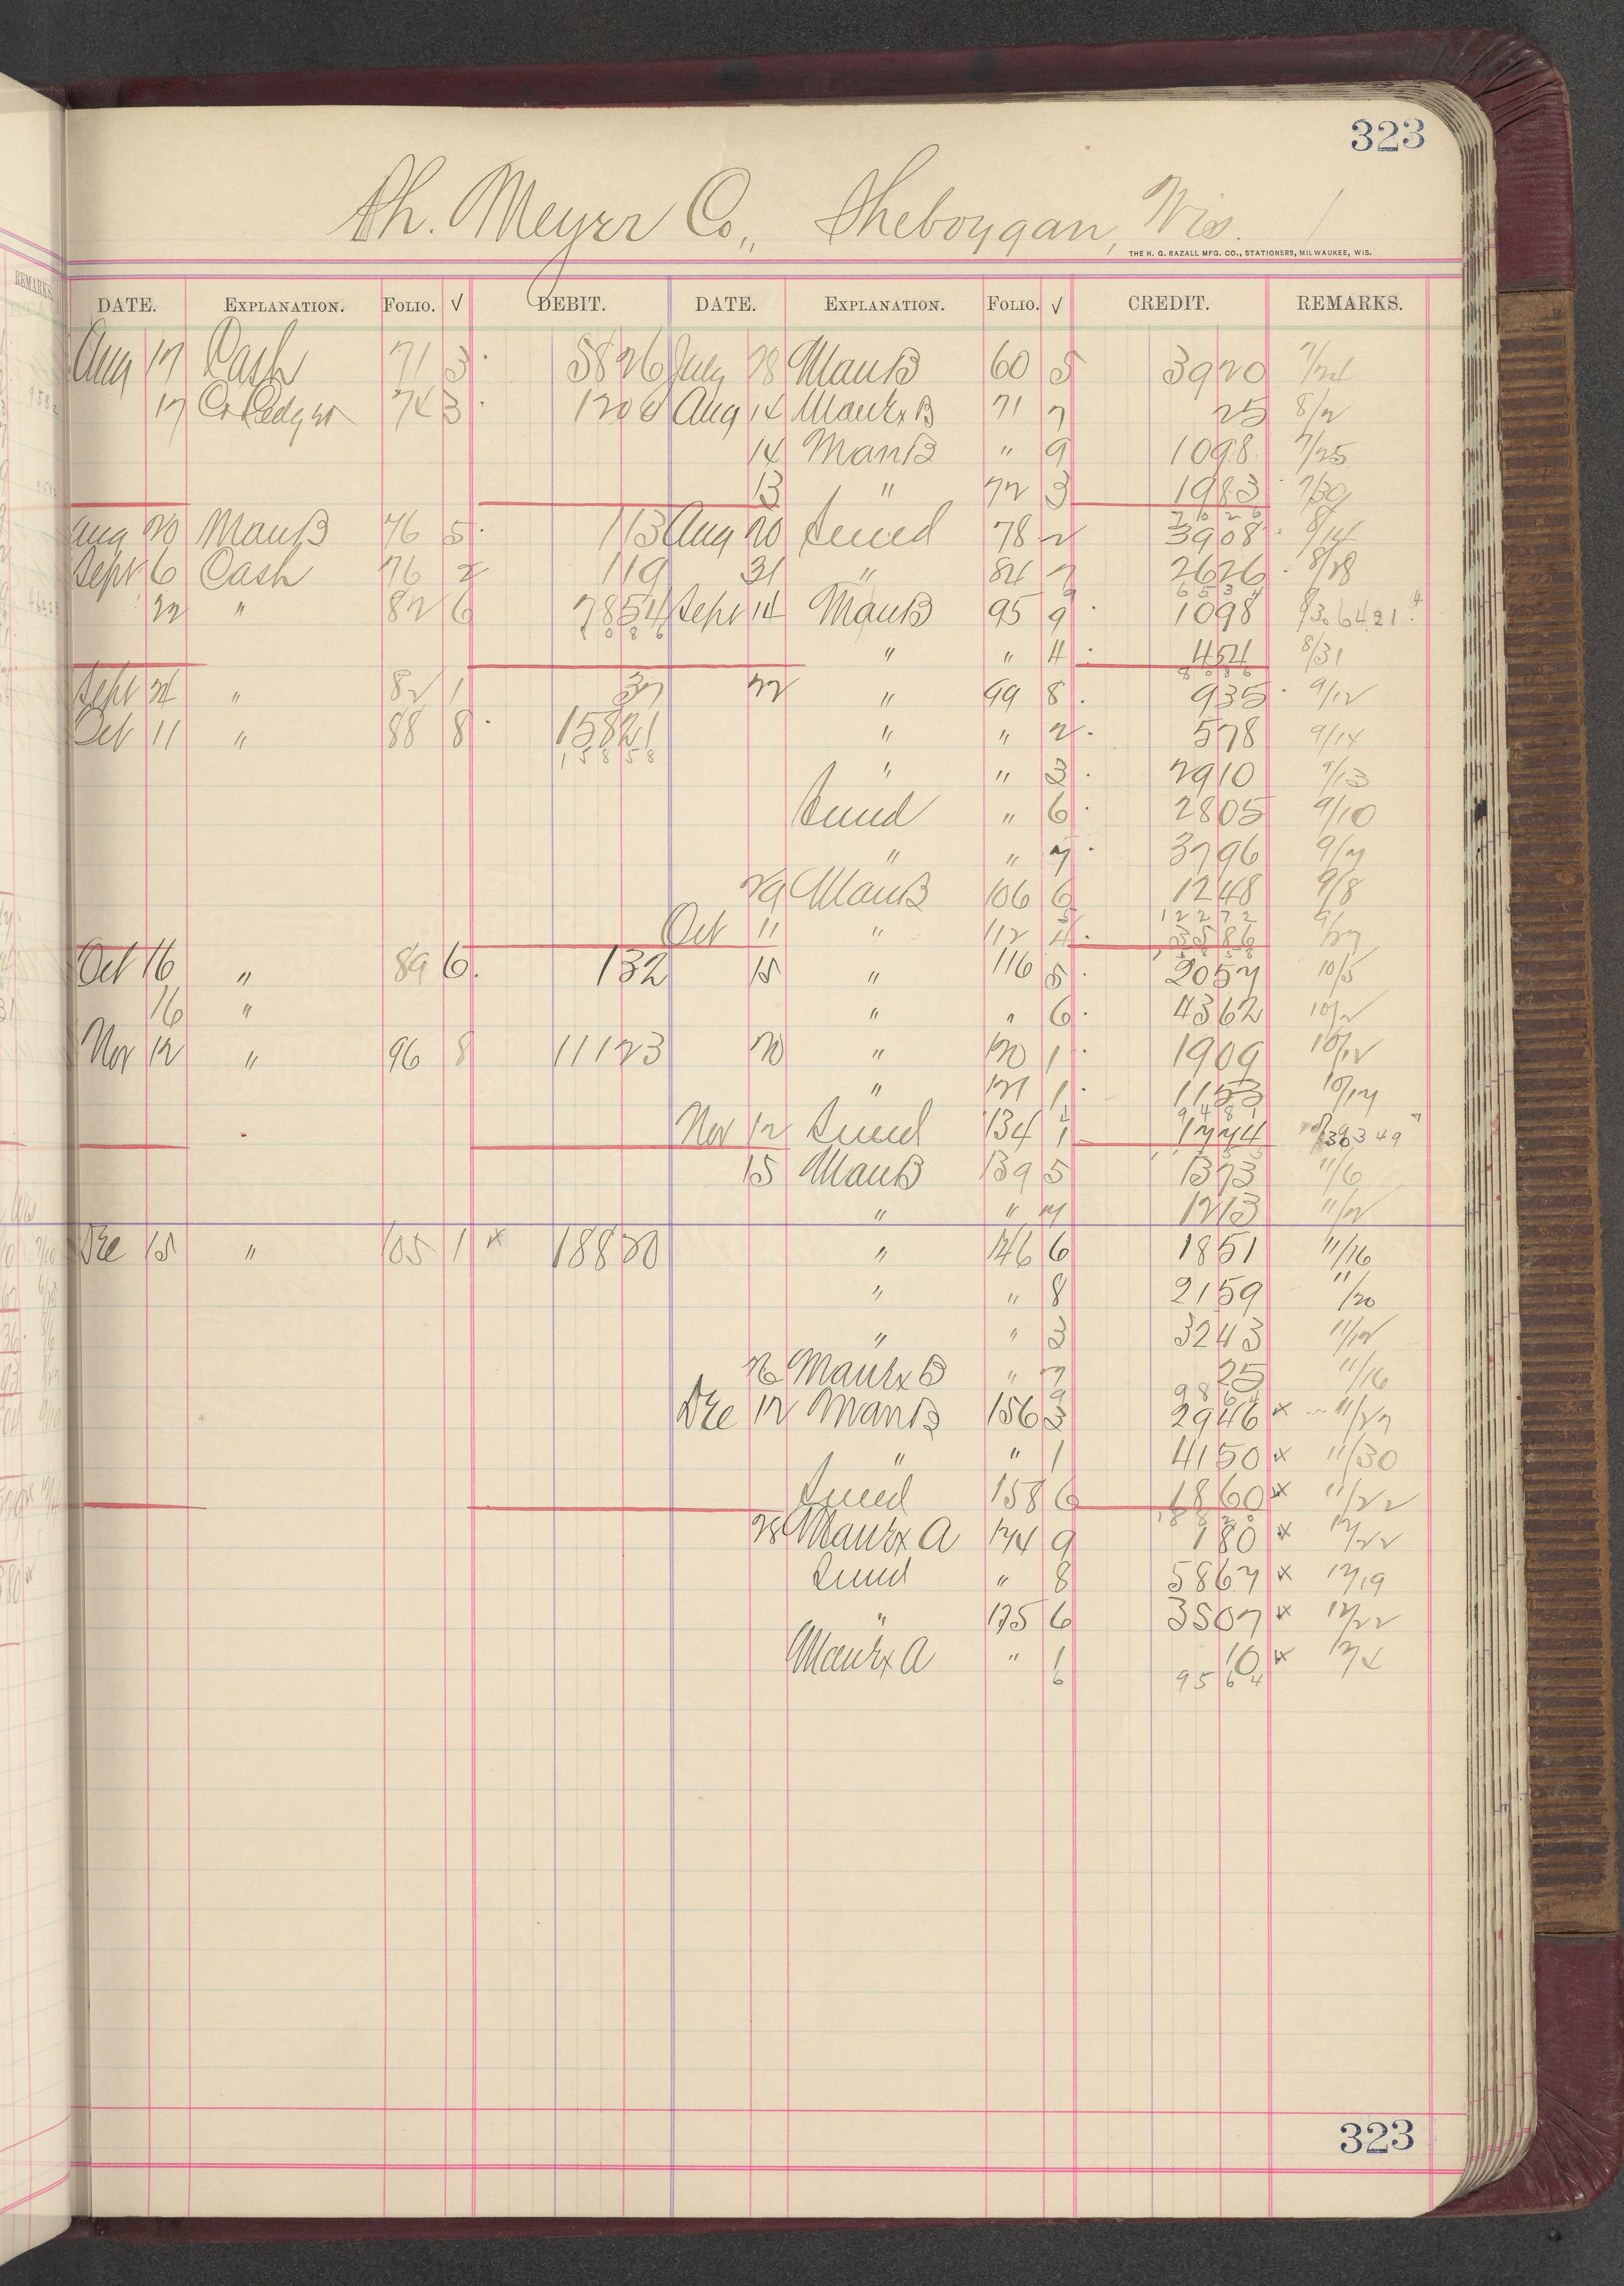 323
Ph. Meyer Co., Sheboygan, Wis.
THE H. G. RAZALL MFG. CO., STATIONERS, MILWAUKEE, WIS.
DATE. EXPLANATION. FOLIO. √ DEBIT. DATE. EXPLANATION. FOLIO. √ CREDIT. REMARKS.
Aug 17 Cash 71 3 5826 July 28 ManB 60 5 3920 7/24
17 Cr Ledger 74 3 1206 Aug 14 ManExB 71 7 25 8/2
14 ManB " 9 1098 7/25
13 " 72 3 1983 7/30
7026
Aug 20 ManB 76 5 113 Aug 20 78 2 3908 8/14
Sept 6 Cash 76 2 119 31 " 84 7 2626 8/28
6534
22 " 82 6 7854 Sept 14 ManB 95 9 1098 6421
8086
" " 4 454 8/31
8086
Sept 24 " 82 1 37 22 " 99 8 935 9/12
Oct 11 " 88 8 15821 " " 2 578 9/14
15858
" " 3 2910 9/13
" 6 2805 9/10
" " 7 3796 9/7
29 ManB 106 6 1248 9/8
12272
Oct 11 " 112 4 3586 9/27
Oct 16 " 89 6 132 15 " 116 5 2057 10/5
16 " " " 6 4362 10/2
Nov 12 " 96 8 11123 20 " 120 1 1909 10/12
" 121 1 1153 10/17
9481
Nov 12 134 1 1774 10/30 9349
15 ManB 139 5 1373 11/6
" " 7 1213 11/2
Dec 15 " 105 1 x 18820 " 146 6 1851 11/16
" " 8 2159 11/20
" " 3 3243 11/12
26 ManExB " 7 25 11/16
9864
Dec 12 ManB 156 3 2946 x 11/27
" " 1 4150 x 11/30
158 6 1860 x 11/22
18820
28 ManEx A 174 9 180 x 12/22
" 8 5867 x 12/19
" 175 6 3507 x 12/22
ManEx A " 1 10 x 12/4
6 9564
323